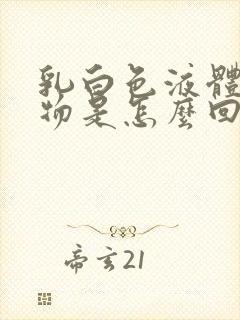 乳白色液體
物是怎麼回
帝玄21